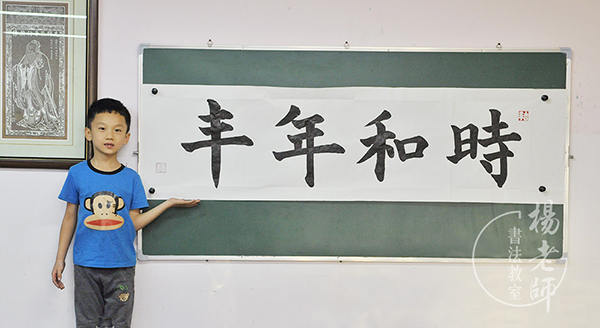 時和年丰
楊老師
書法教室